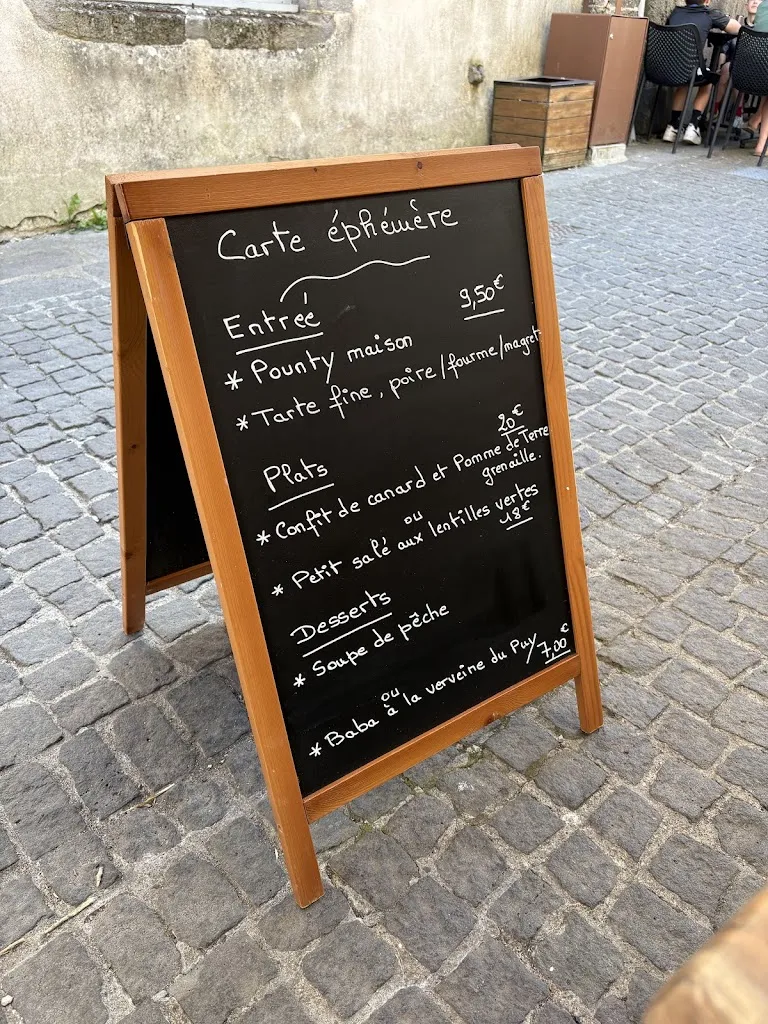 Carte éphémère
Entrée
9,50€
* Pounty maison
* Tarte fine, poire/fourme/magret.
20€
Plats
* Confit de canard et Pomme de Terre
grenaille.
ou
* Petit salé aux lentilles vertes
18€
Desserts
* Soupe de pêche
ou
* Baba à la verveine du Puy/7,00€